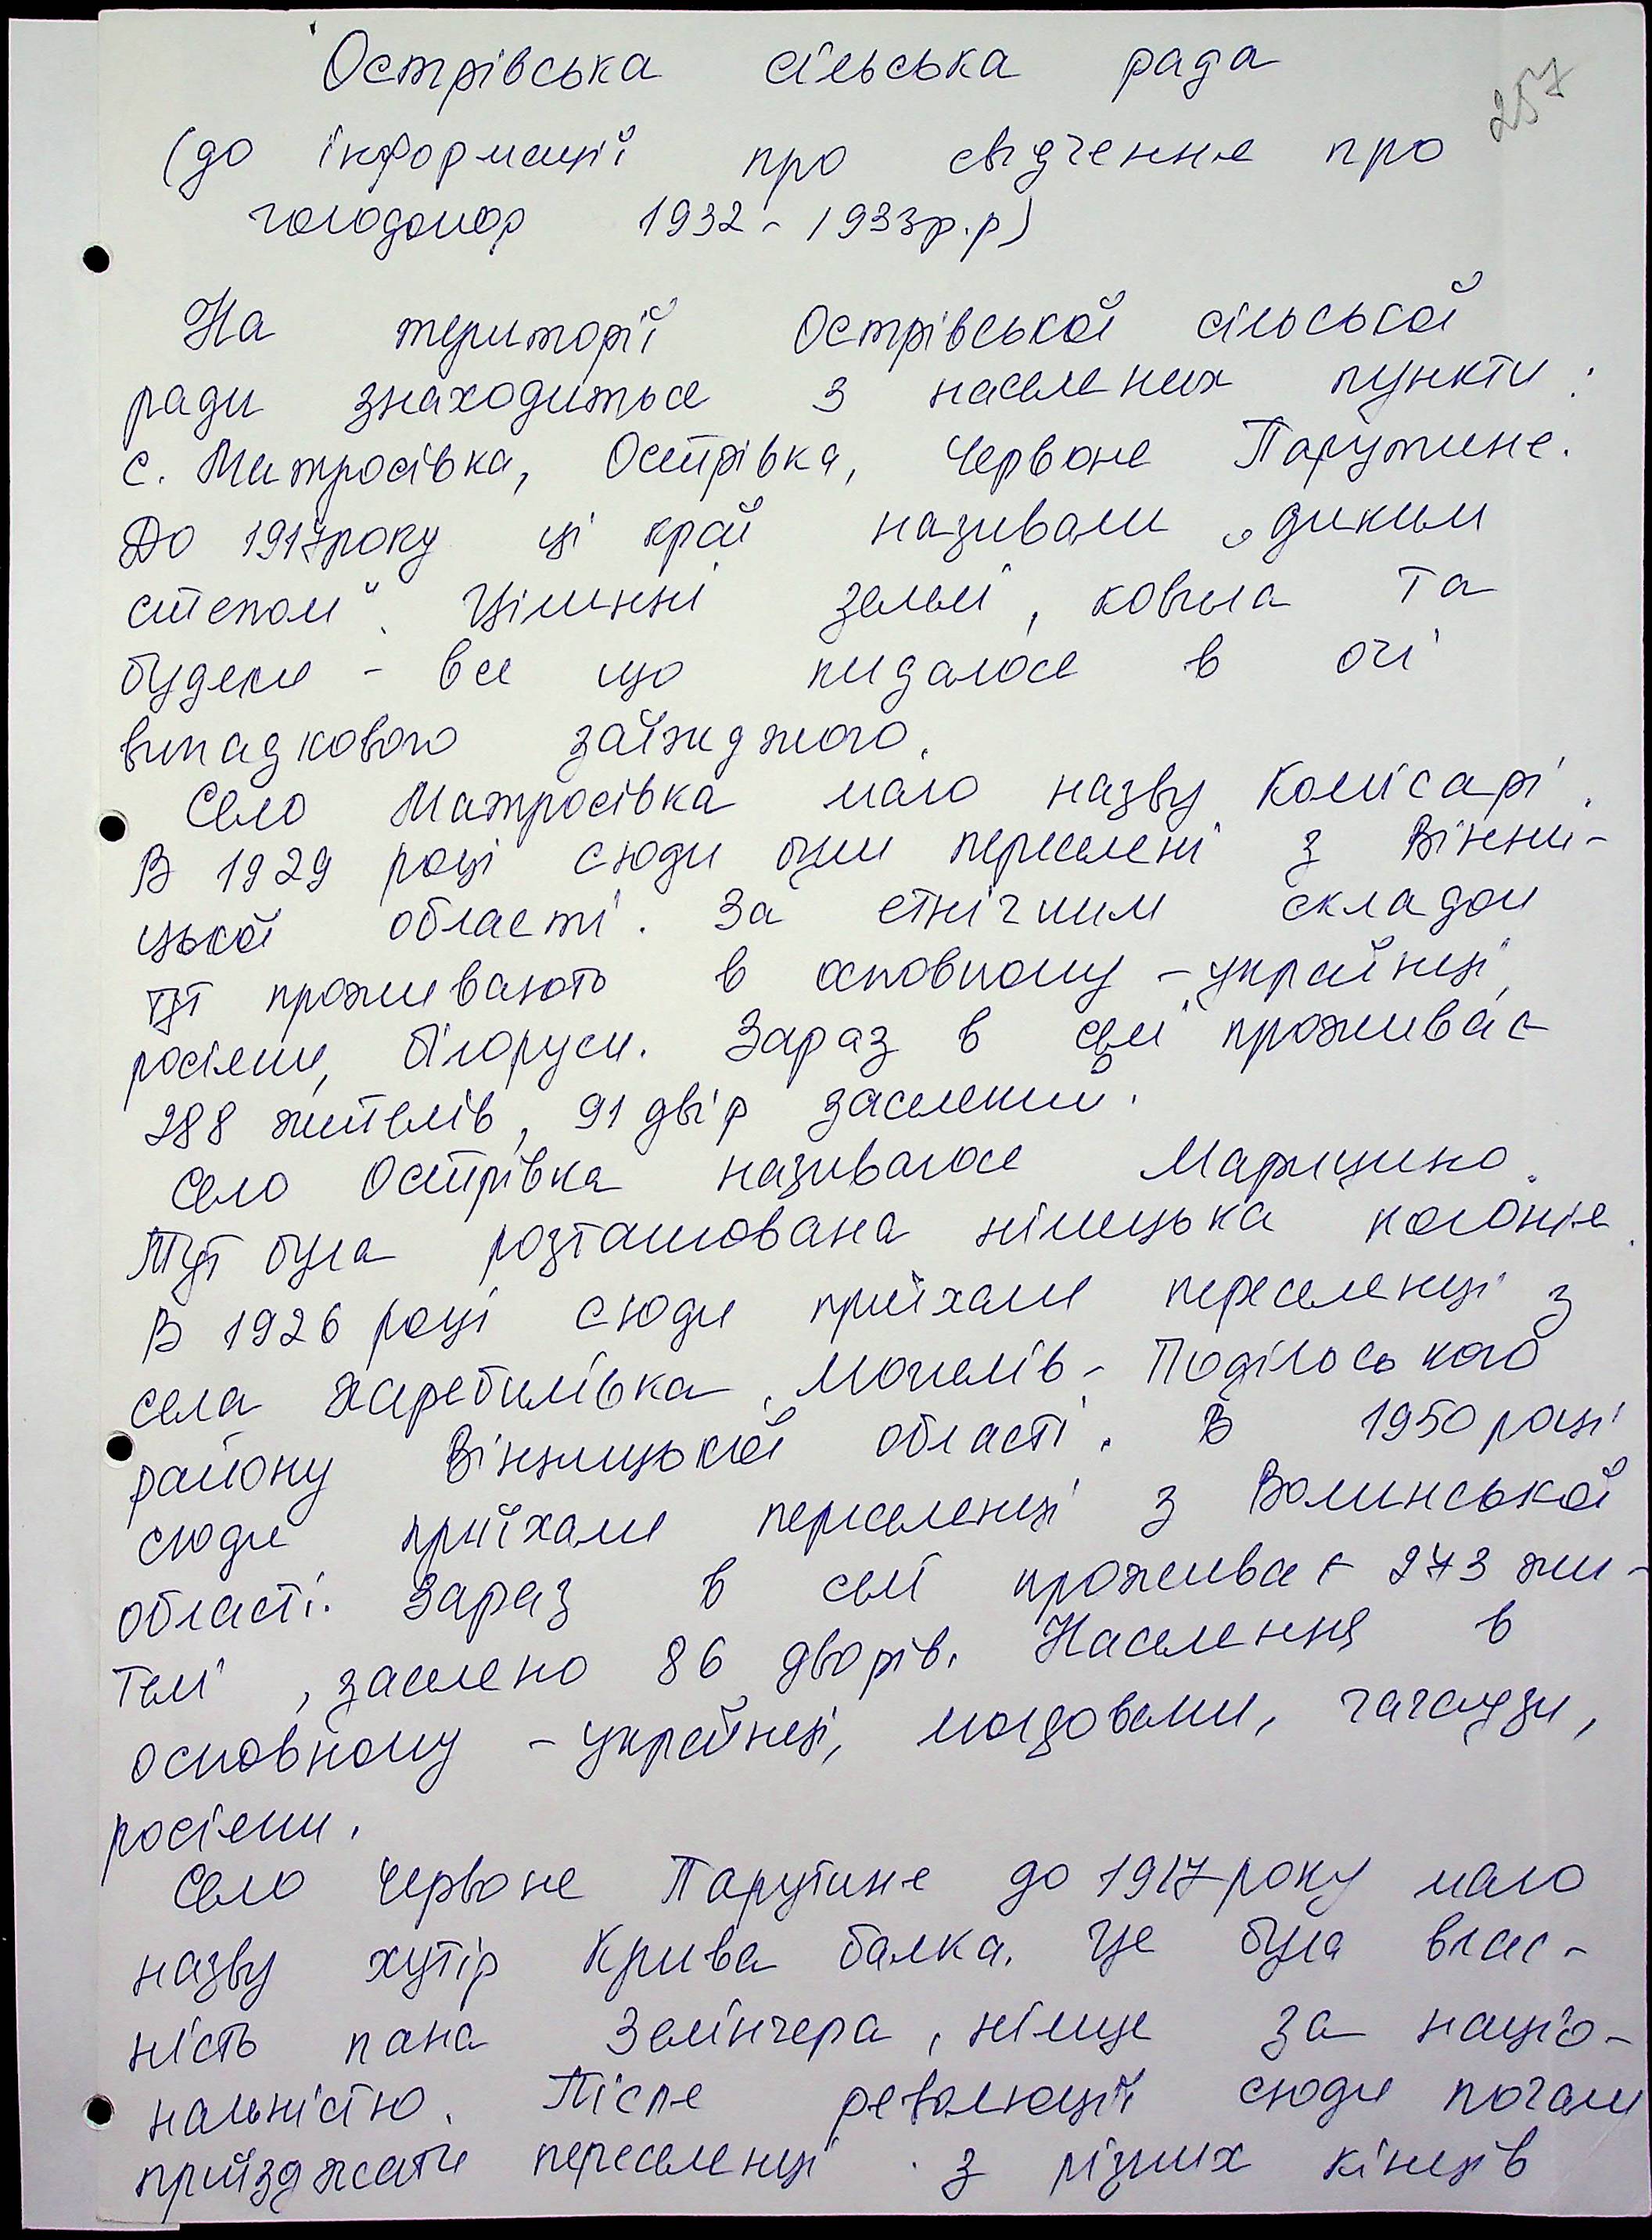 Острівська сільська рада
257
(до інформації про свідчення про
голодомор 1932 - 1933р.р)
На території Острівської сільської
ради знаходиться 3 населених пункти:
с. Матросівка, Острівка, Червоне Парутине.
До 1917року ці краї називали „диким
степом". Цілинні землі, ковила та
будяки - все що кидалося в очі
випадкового заїжджого.
Село Матросівка мало назву Комісарі.
В 1929 році сюди були переселені з Вінни-
цької області. За етнічним складом
тут проживають в основному - українці,
росіяни, білоруси. Зараз в селі проживає
288 жителів, 91 двір заселений.
Село Острівка називалося Марицино.
Тут була розташована німецька колонія.
В 1926 році сюди приїхали переселенці з
села Жеребилівка, Могилів - Подільського
району Вінницької області. В 1950 році
сюди приїхали переселенці з Волинської
області. Зараз в селі проживає 273 жи-
телі, заселено 86 дворів. Населення в
основному - українці, молдовани, гагаузи,
росіяни.
Село Червоне Парутине до 1917 року мало
назву хутір Крива балка. Це була влас-
ність пана Зелінгера, німця за націо-
нальністю. Після революції сюди почали
приїзджати переселенці з різних кінців